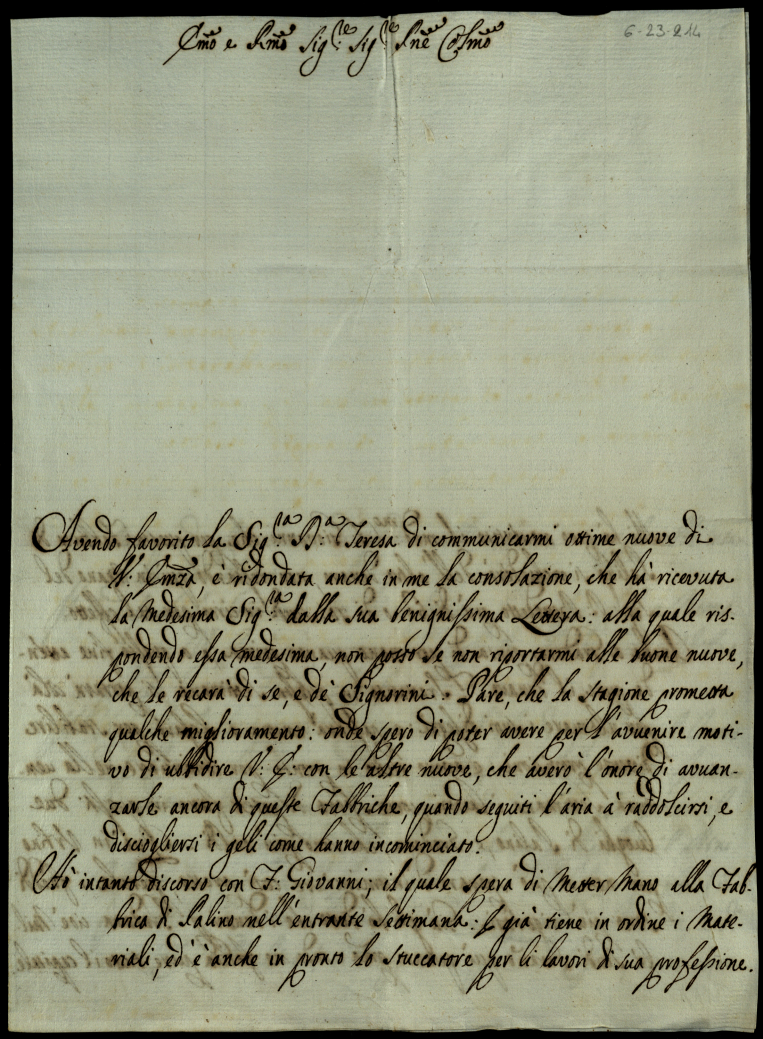 Emo e Rmo Sig:re Sig:re Pne Colmo
6-23-214
Avendo favorito la Sig:ra D:a Teresa di communicarmi ottime nuove di
V: Emza, è ridondata anche in me la consolazione, che hà ricevuta
la Medesima Sig:ra dalla sua benignissima Lettera: alla quale ris-
pondendo essa medesima, non posso se non riportarmi alle buone nuove,
che le recarà di se, e de' Signorini. Pare, che la stagione prometta
qualche miglioramento: onde spero di poter avere per l'avvenire moti-
vo di ubbidire V: E: con le altre nuove, che averò l'onore di avvan-
zarle ancora di queste Fabbriche, quando seguiti l'aria à raddolcirsi, e
disciogliersi i geli come hanno incominciato.
Hò intanto discorso con F: Giovanni; il quale spera di Metter Mano alla Fab-
brica di Palino nell'entrante Settimana: E già tiene in ordine i Mate-
riali, ed è anche in pronto lo stuccatore per li lavori di sua professione.